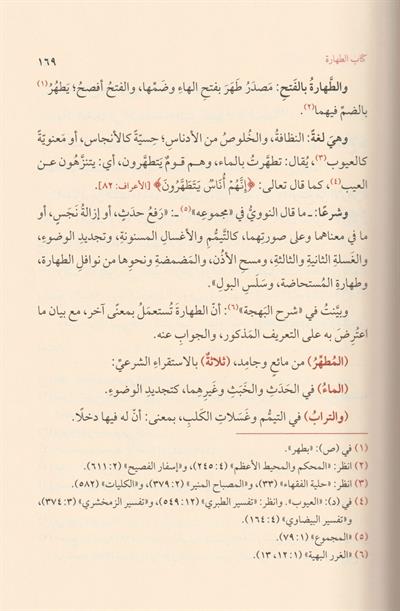 كتاب الطهارة
١٦٩
والطَّهارةُ بالفَتحِ: مَصدَرُ طَهَرَ بفتحِ الهاءِ وضَمِّها، والفتحُ أفصحُ؛ يَطهُرُ(١)
بالضمِّ فيهما(٢).
وهيَ لغةً: النظافةُ، والخُلوصُ من الأدناسِ؛ حِسيّةً كالأنجاسِ، أو مَعنويّةً
كالعيوبِ(٣)، يُقال: تطهَّرتُ بالماء، وهم قومٌ يَتطهَّرون، أي: يتنزَّهون عن
العيب(٤)، كما قال تعالى: ﴿إِنَّهُمْ أُنَاسٌ يَتَطَهَّرُونَ﴾ [الأعراف: ٨٢].
وشرعًا: ـ ما قال النوويُّ في «مجموعِه»(٥) ـ: «رَفعُ حدَثٍ، أو إزالةُ نَجَسٍ، أو
ما في معناهما وعلى صورتِهما، كالتيمُّمِ والأغسالِ المسنونةِ، وتجديدِ الوضوءِ،
والغَسلةِ الثانيةِ والثالثةِ، ومسحِ الأذُنِ، والمَضمَضةِ ونحوِها من نوافلِ الطهارة،
وطهارةِ المُستحاضة، وسَلَسِ البولِ».
وبيَّنتُ في «شرح البَهجة»(٦): أنَّ الطهارةَ تُستعمَلُ بمعنًى آخر، مع بيان ما
اعتُرِضَ به على التعريف المَذكور، والجوابِ عنه.
(المُطهِّرُ) من مائعٍ وجامِد، (ثلاثةٌ) بالاستقراءِ الشرعيِّ:
(الماءُ) في الحَدَثِ والخَبَثِ وغَيرِهما، كتجديدِ الوضوءِ.
(والترابُ) في التيمُّم وغَسَلاتِ الكلبِ، بمعنى: أنَّ له فيها دخلًا.
(١) في (ص): «بطهر».
(٢) انظر: «المحكم والمحيط الأعظم» (٤: ٢٤٥)، و«إسفار الفصيح» (٢: ٦١١).
(٣) انظر: «حلية الفقهاء» (٣٣)، و«المصباح المنير» (٢: ٣٧٩)، و«الكليات» (٥٨٢).
(٤) في (د): «العيوب». وانظر: «تفسير الطبري» (١٢: ٥٤٩)، و«تفسير الزمخشري» (٣: ٣٧٤)،
و«تفسير البيضاوي» (٤: ١٦٤).
(٥) «المجموع» (١: ٧٩).
(٦) «الغرر البهية» (١: ١٢، ١٣).